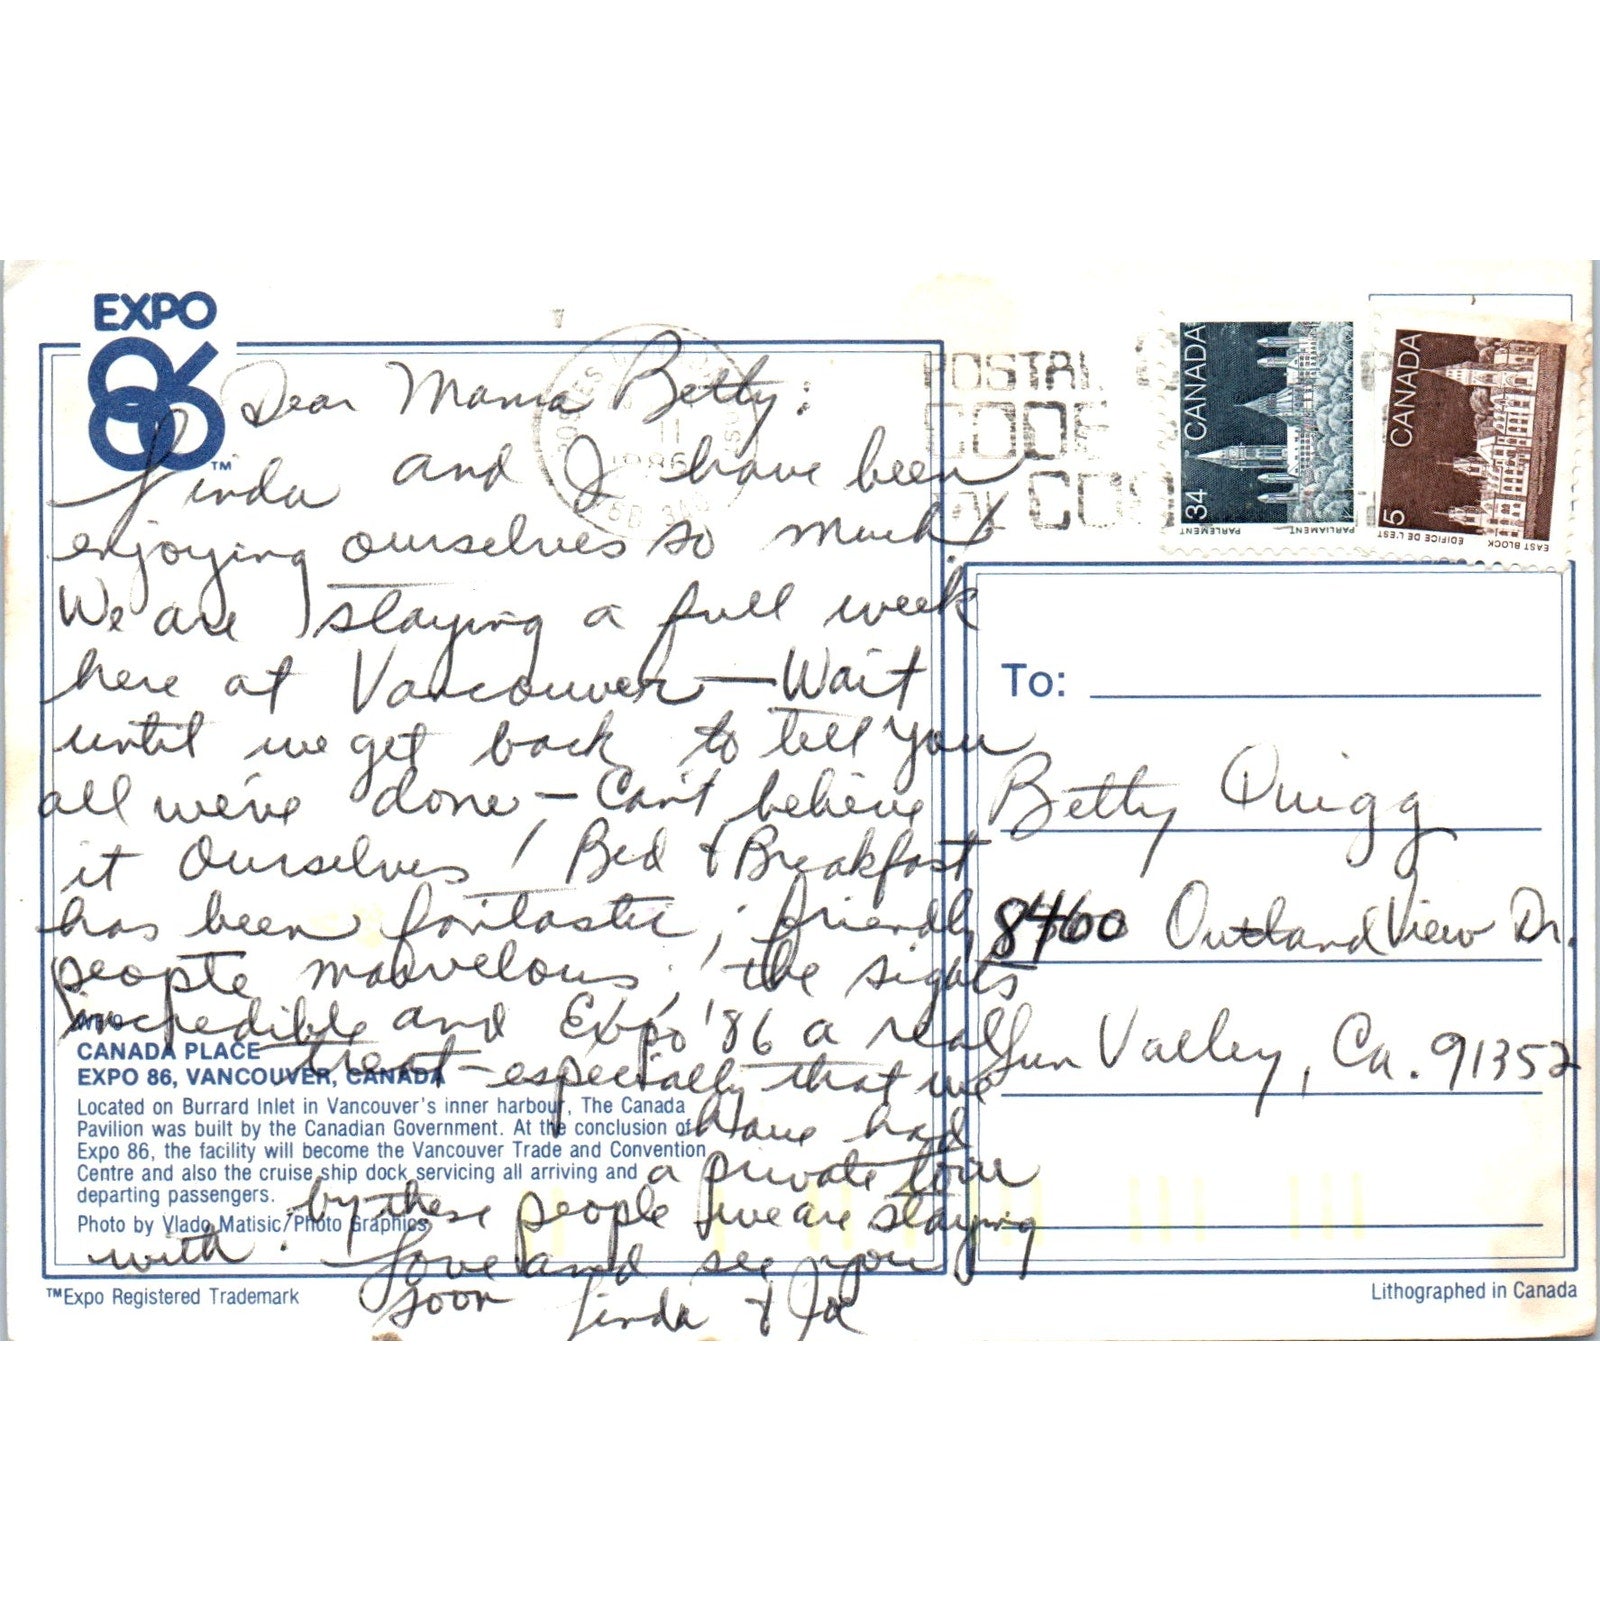 EXPO
86™
Dear Mama Betty:
Linda and I have been
enjoying ourselves so much!
We are staying a full week
here at Vancouver — Wait
until we get back to tell you
all we've done — Can't believe
it Ourselves! Bed & Breakfast
has been fantastic; friendly
people marvelous; the sights
incredible and Expo '86 a real
treat - especially that we
have had
a private tour
by these people we are staying
with. Love and see you
soon Linda & Joe
CANADA PLACE
EXPO 86, VANCOUVER, CANADA
Located on Burrard Inlet in Vancouver's inner harbour, The Canada
Pavilion was built by the Canadian Government. At the conclusion of
Expo 86, the facility will become the Vancouver Trade and Convention
Centre and also the cruise ship dock servicing all arriving and
departing passengers.
Photo by Vlado Matisic/Photo Graphics
™Expo Registered Trademark
11
1986
POSTAL
CODE
CANADA
34
PARLEMENT PARLIAMENT
CANADA
5
ÉDIFICE DE L'EST EAST BLOCK
To:
Betty Quigg
8460 Outland View Dr.
Sun Valley, Ca. 91352
Lithographed in Canada